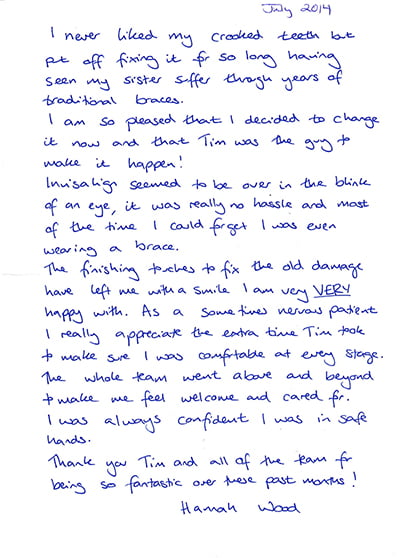 July 2014
I never liked my crooked teeth but
put off fixing it for so long having
seen my sister suffer through years of
traditional braces.
I am so pleased that I decided to change
it now and that Tim was the guy to
make it happen!
Invisalign seemed to be over in the blink
of an eye, it was really no hassle and most
of the time I could forget I was even
wearing a brace.
The finishing touches to fix the old damage
have left me with a smile I am very VERY
happy with. As a sometimes nervous patient
I really appreciate the extra time Tim took
to make sure I was comfortable at every stage.
The whole team went above and beyond
to make me feel welcome and cared for.
I was always confident I was in safe
hands.
Thank you Tim and all of the team for
being so fantastic over these past months!
Hannah Wood